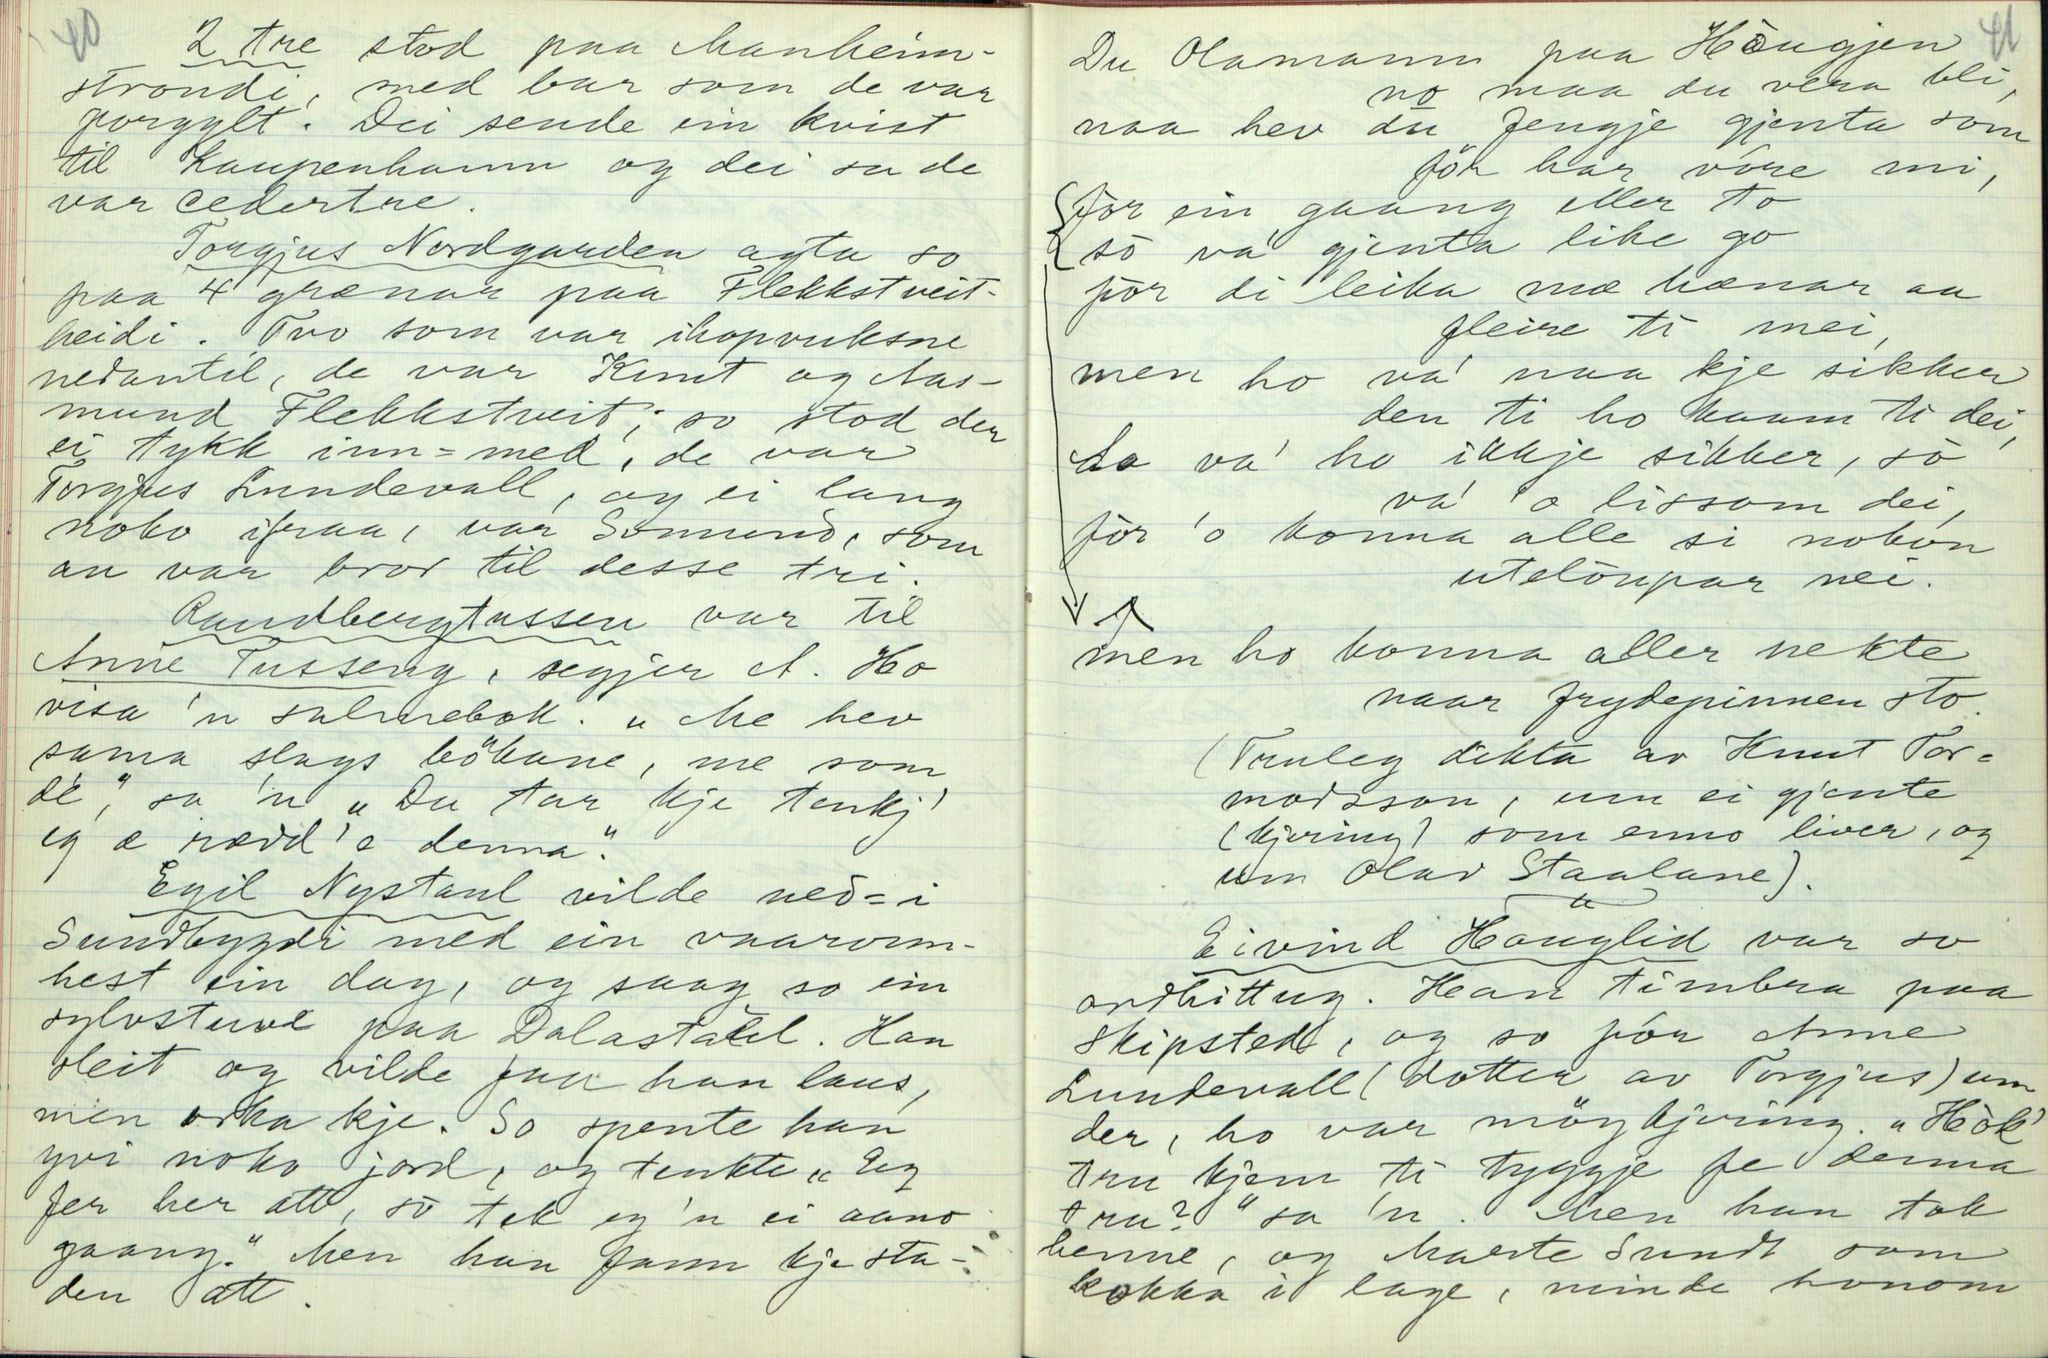 40
2 tre stod paa Manheim-
strondi, med bar som de var
forgylt. Dei sende ein kvist
til Kaupenhamn og dei sa de
var cedertre.
Torgjus Nordgarden agta so
paa 4 grænar paa Flekkstveit-
heidi. Tvo som var ihopvuksne
nedantil, de var Knut og Aas-
mund Flekkstveit; so stod der
ei tykk inn-med, de var
Torgjus Lundevall, og ei lang
noko ifraa, var Sonnund, som
au var bror til desse tri.
Raudbergtussen var til
Anne Tusseng, segjer A. Ho
visa 'n salmebok. „Me hev
sama slags bökane, me som
dé", sa 'n „Du tar kje tenkj'
eg æ rædd 'e denna".
Egil Nystaul vilde ned-i
Sundbygdi med ein vaaronn-
hest ein dag, og saag so ein
sylvstuve paa Dalastaul. Han
sleit og vilde faa han laus,
men orka kje. So spente han
yvi noko jord, og tenkte „Eg
fer her att, sò tek eg 'n ei aano
gaang." Men han fann kje sta-
den att.
41
Du Olamann paa Hòugjen
no maa du vera bli,
naa hev du fengje gjenta som
för har vóre mi,
fòr ein gaang eller to
sò va' gjenta like go
fòr di leika mæ hænar aa
fleire ti mei,
men ho va' naa kje sikker
den ti ho kaam ti dei,
Aa va' ho ikkje sikker, sò
va' 'o lissom dei,
fòr 'o konna alle si nokon
utelòupar nei.
men ho konna aller nekte
naar frydepinnen sto.
(Truleg dikta av Knut Tor-
modsson, um ei gjente
(kjering) som enno liver, og
um Olav Staalane).
Eivind Hauglid var so
ordhittug. Han timbra paa
Skipsted, og so fór Anne
Lundevall (dotter av Torgjus) um
der, ho var möykjering. „Hòk'
tru kjem ti tyggje fe denna
tru?" sa 'n. Men han tok
henne, og Marte Sundt som
kokka i lage, minde honom